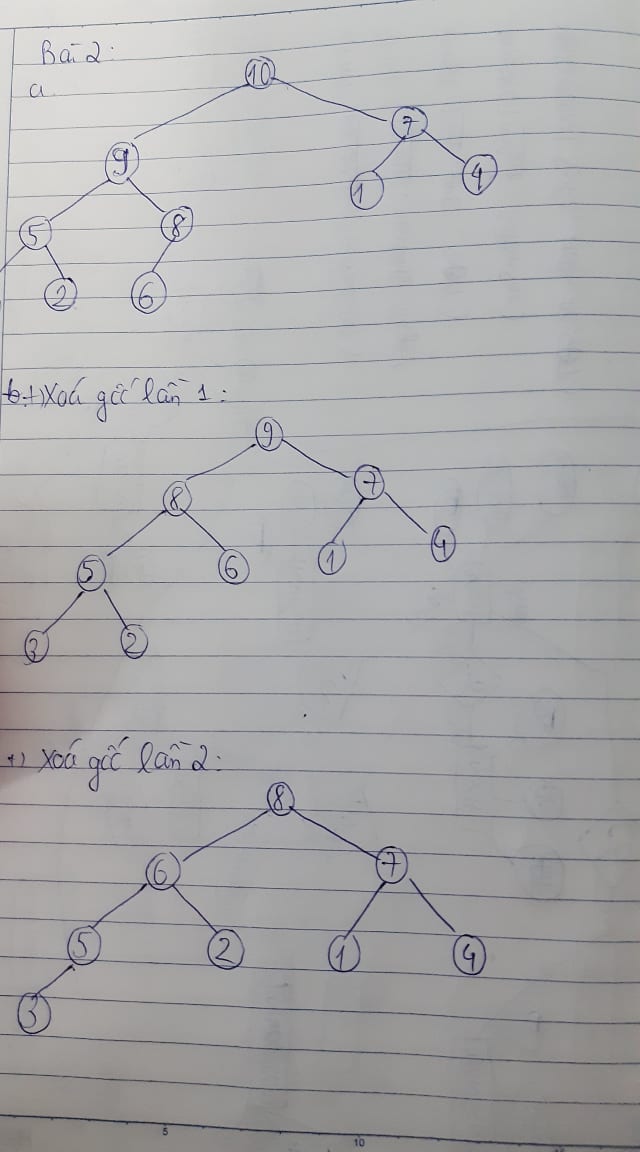 Bài 2:
a
10
9 7
5 8 1 4
2 6
b.+) Xoá gốc lần 1:
9
8 7
5 6 1 4
3 2
+) Xoá gốc lần 2:
8
6 7
5 2 1 4
3
5 10